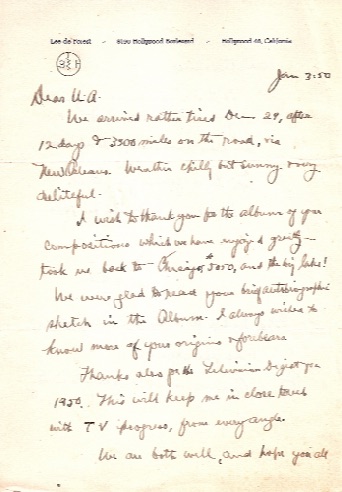 Lee de Forest - 8190 Hollywood Boulevard - Hollywood 46, California
Jan 3:50
Dear U.A.
We arrived rather tired Dec 29, after
12 days & 3500 miles on the road, via
New Orleans. Weather chilly but sunny & very
deliteful.
I wish to thank you for the album of your
compositions which we have enjoyed greatly—
took me back to Chicago, and the big lake!
We were glad to read your brief autobiographic
sketch in the Album. I always wished to
know more of your origins & forbears
Thanks also for the Television Digest for
1950. This will keep me in close touch
with TV progress, from every angle.
We are both well, and hope you all